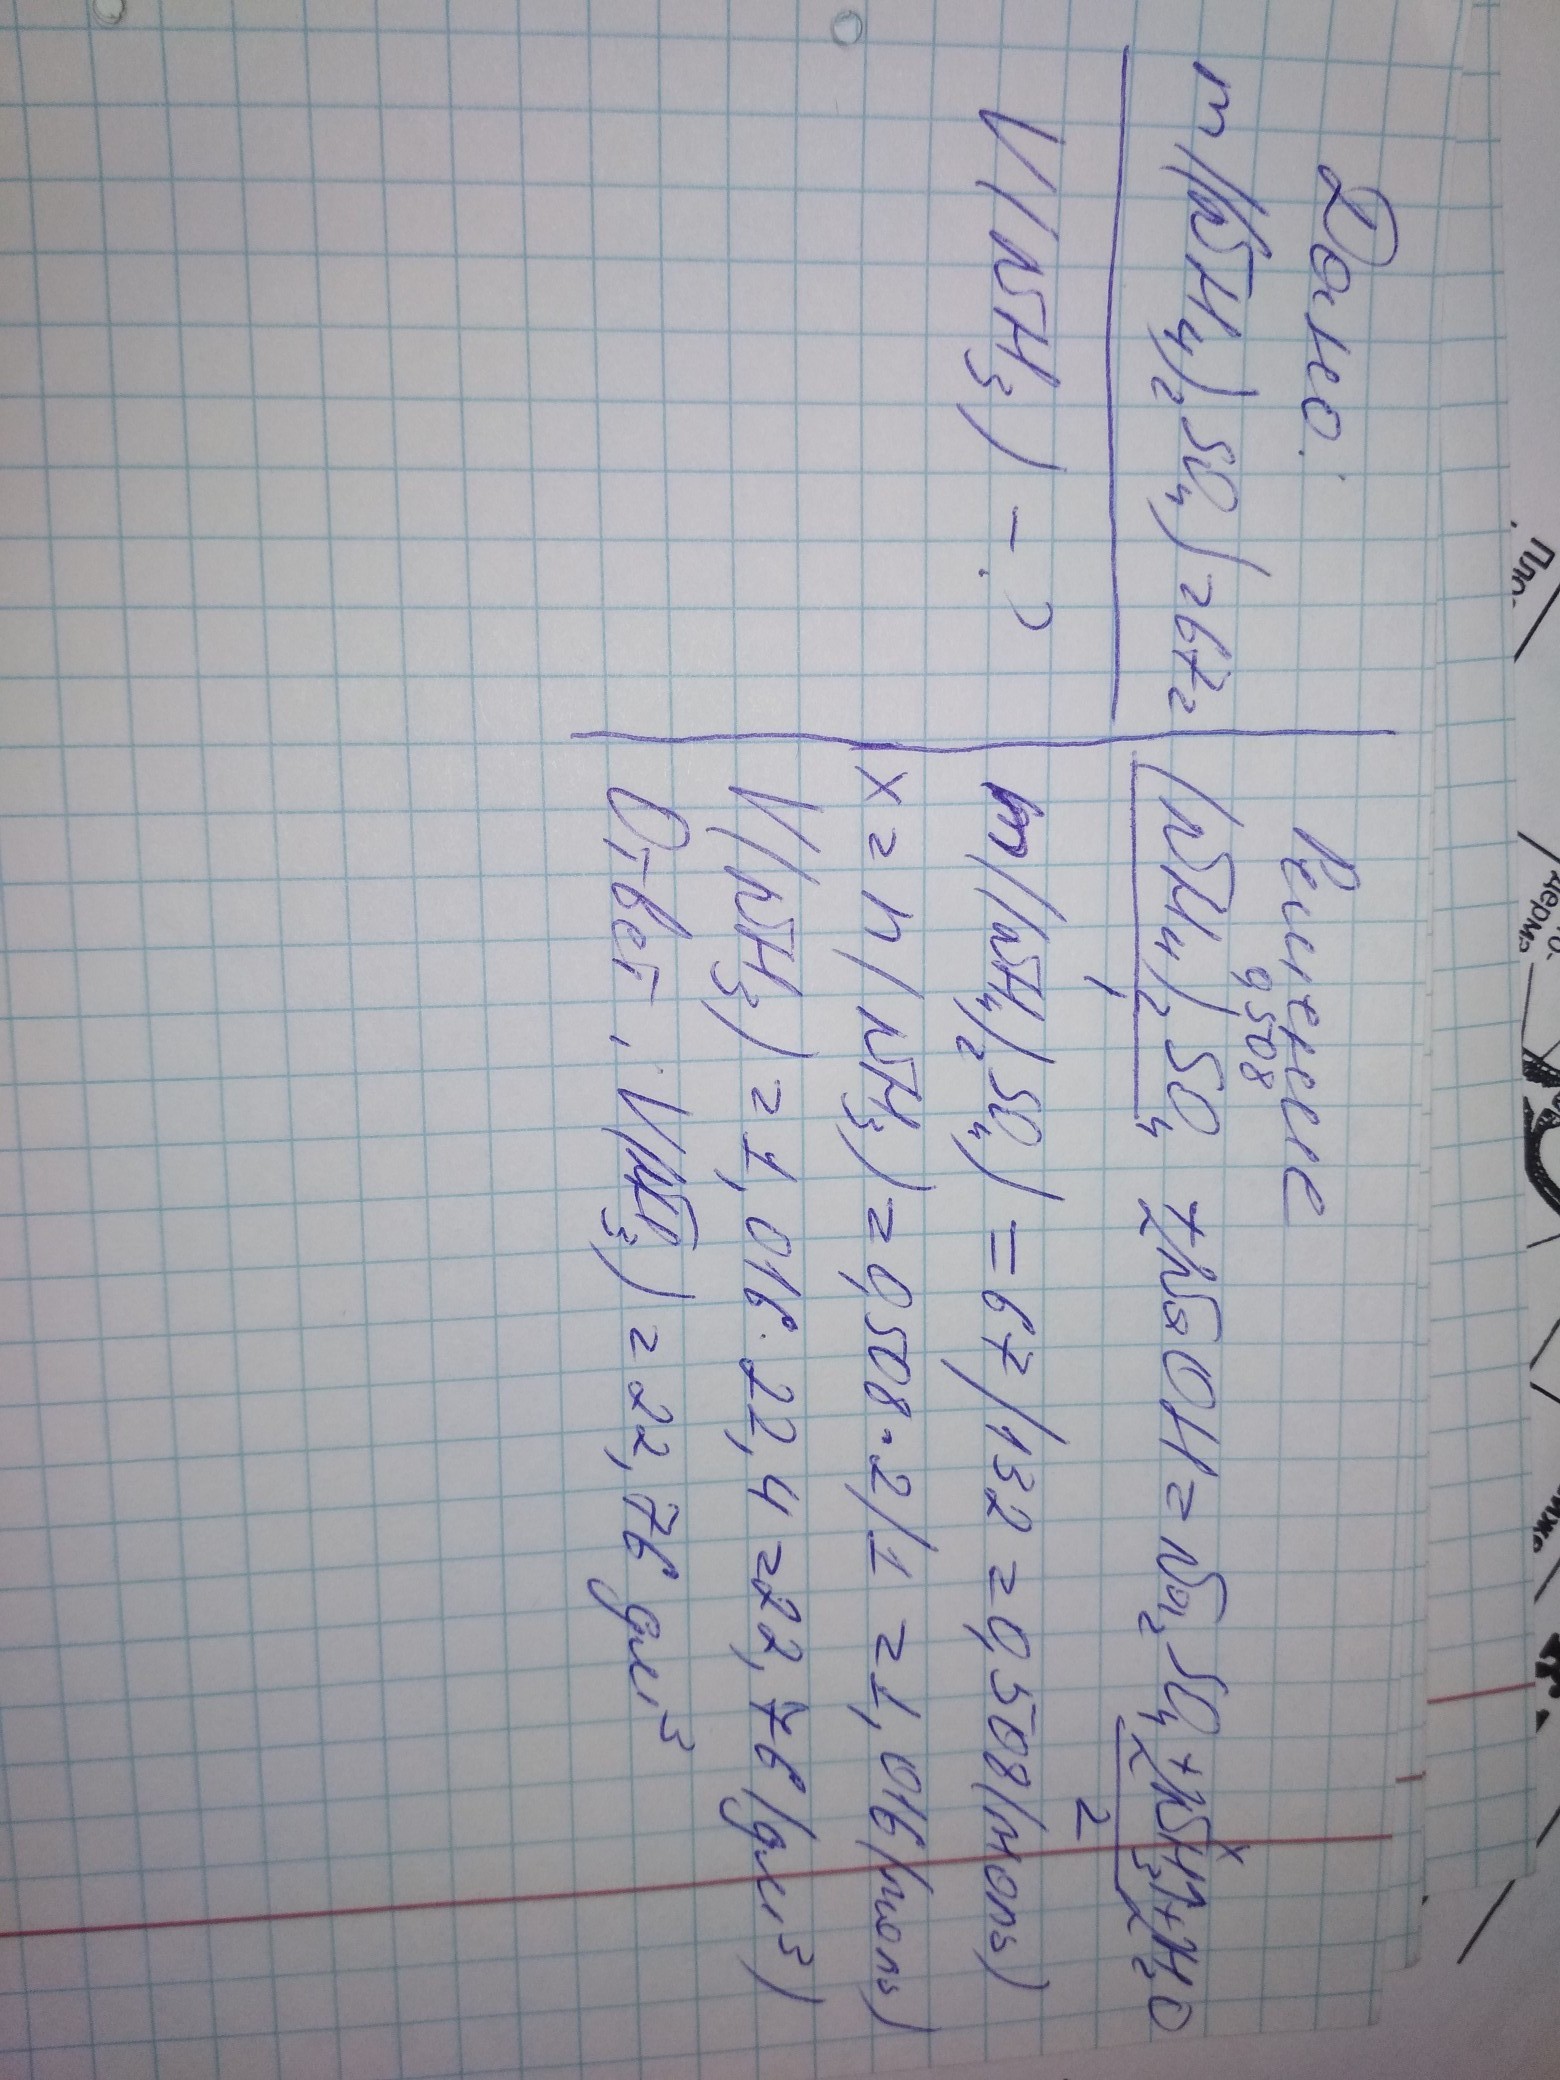 Дано:
m((NH4)2SO4)=67г
V(NH3)-?
Решение
0,508 x
(NH4)2SO4 + 2NaOH = Na2SO4 + 2NH3↑ + 2H2O
1 2
m((NH4)2SO4) = 67/132 = 0,508(моль)
x = n(NH3) = 0,508·2/1 = 1,016(моль)
V(NH3) = 1,016·22,4 = 22,76(дм³)
Ответ: V(NH3) = 22,76 дм³